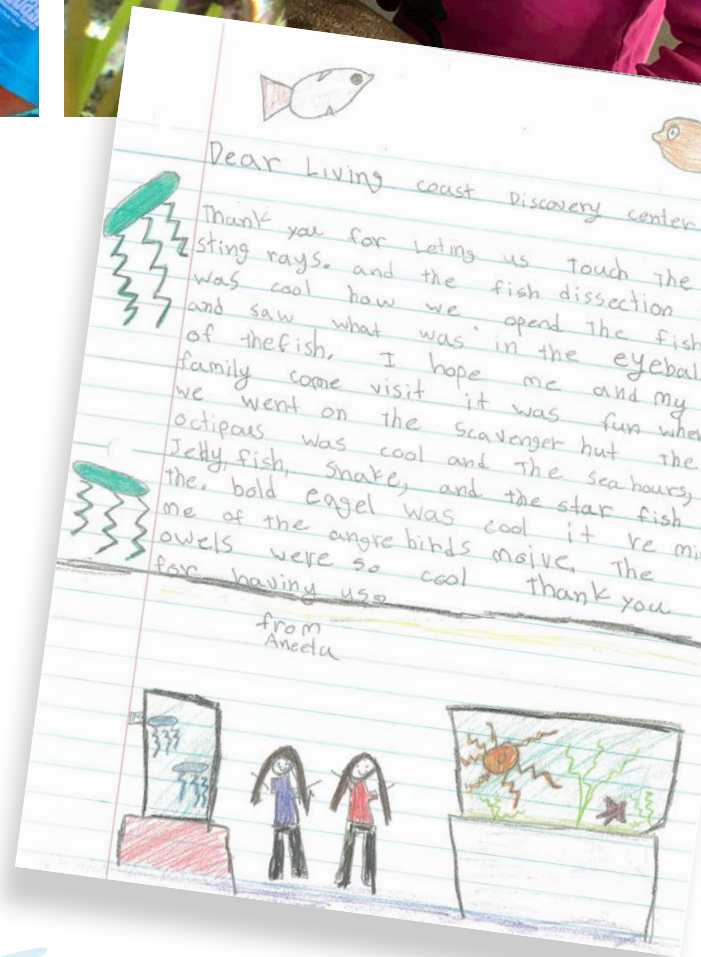 Dear Living coast Discovery center
Thank you for Leting us touch The
sting rays. and the fish dissection
was cool how we opend The fish
and saw what was in the eyebal
of thefish. I hope me and my
family come visit it was fun when
we went on the scavenger hut the
octipous was cool and The sea hours,
Jelly fish, snake, and the star fish
the. bold eagel was cool it re mi
me of the angre birds moive. The
owels were so cool thank you
for having us.
from
Aneeta